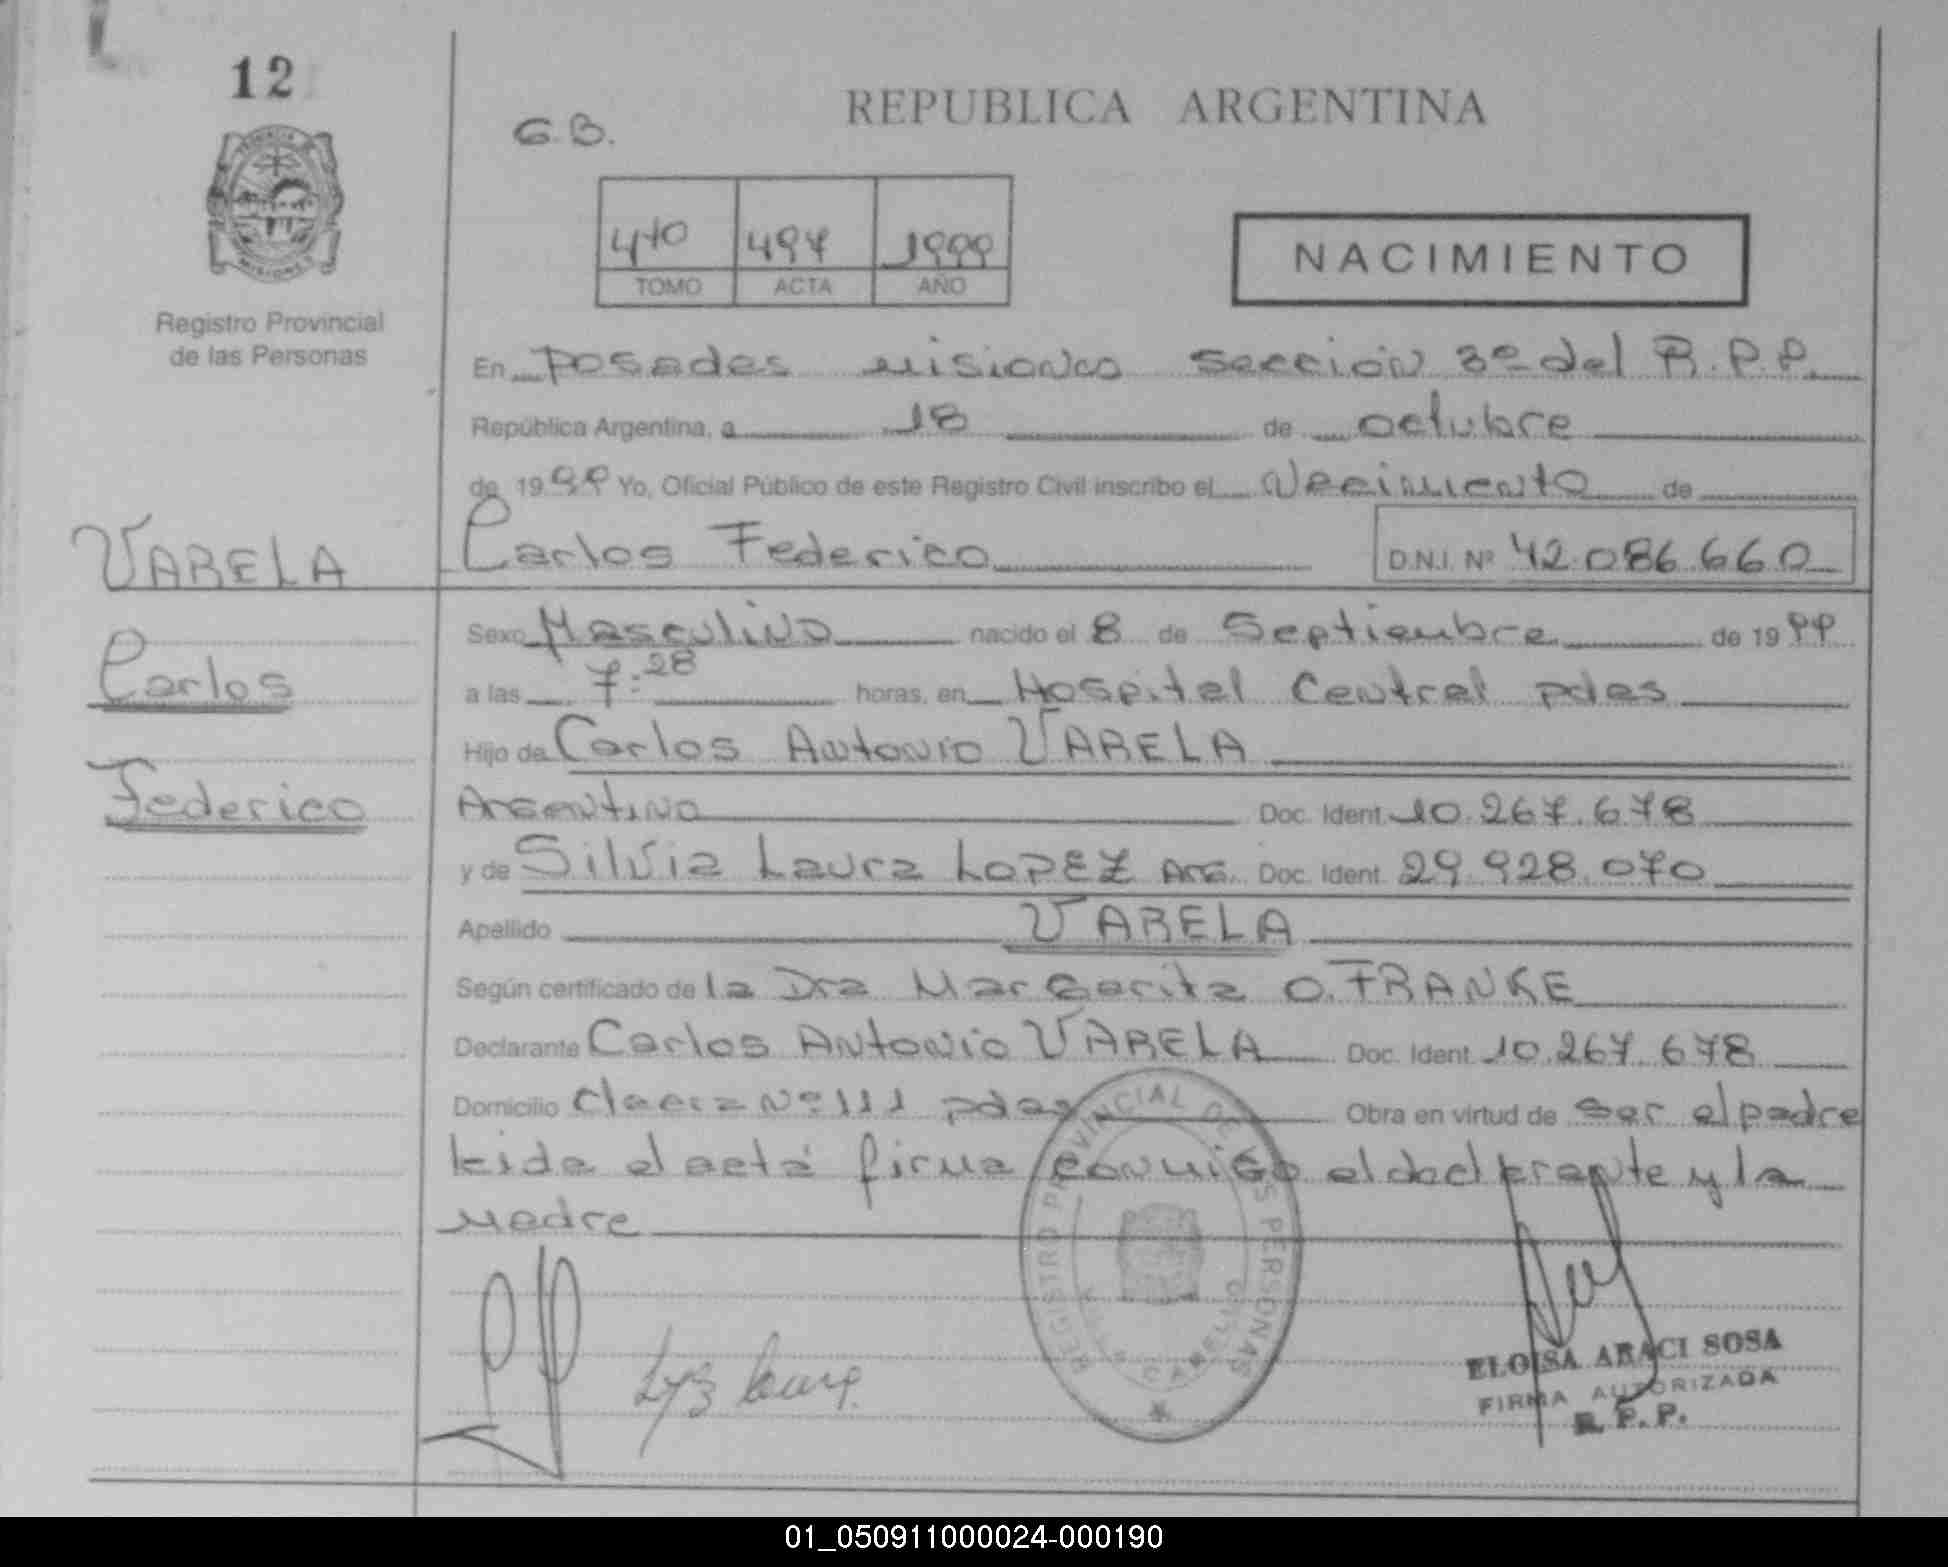 12
G.B.
REPUBLICA ARGENTINA
MISIONES
410 497 1999
TOMO ACTA AÑO
NACIMIENTO
Registro Provincial
de las Personas
En Posadas Misiones Sección 3º del R.P.P.
República Argentina, a 18 de octubre
de 1999 Yo, Oficial Público de este Registro Civil inscribo el Nacimiento de
VARELA
Carlos Federico D.N.I. Nº 42.086.660
Sexo Masculino nacido el 8 de Septiembre de 1999
Carlos
a las 7:28 horas, en Hospital Central pdas
Hijo de Carlos Antonio VARELA
Federico
Argentino Doc. Ident. 10.267.678
y de Silvia Laura LOPEZ Arg. Doc. Ident. 29.928.070
Apellido VARELA
Según certificado de la Dra Margarita O. FRANKE
Declarante Carlos Antonio VARELA Doc. Ident. 10.267.678
Domicilio Nº 111 pdas Obra en virtud de ser el padre
leida el acta firma conmigo el declarante y la
madre
REGISTRO PROVINCIAL DE LAS PERSONAS
VILLA CABELLO
ELOISA ARACI SOSA
FIRMA AUTORIZADA
R.P.P.
01_050911000024-000190